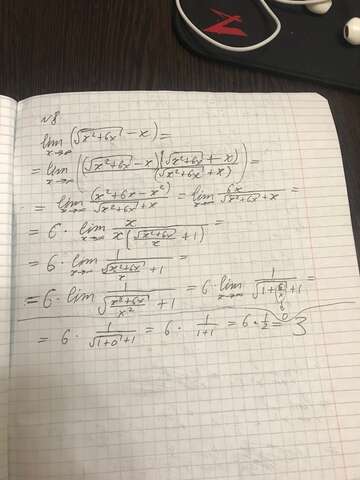 №8
lim x→∞ (√(x²+6x) - x) =
= lim x→∞ ((√(x²+6x) - x)(√(x²+6x) + x) / (√(x²+6x) + x)) =
= lim x→∞ (x²+6x-x²) / (√(x²+6x) + x) = lim x→∞ 6x / (√(x²+6x) + x) =
= 6 · lim x→∞ x / (x(√(x²+6x) / x + 1)) =
= 6 · lim x→∞ 1 / (√(x²+6x) / x + 1) =
= 6 · lim x→∞ 1 / (√((x²+6x) / x²) + 1) = 6 · lim x→∞ 1 / (√(1 + 6/x) + 1) =
0
= 6 · 1 / (√(1+0) + 1) = 6 · 1 / (1+1) = 6 · 1/2 = 3